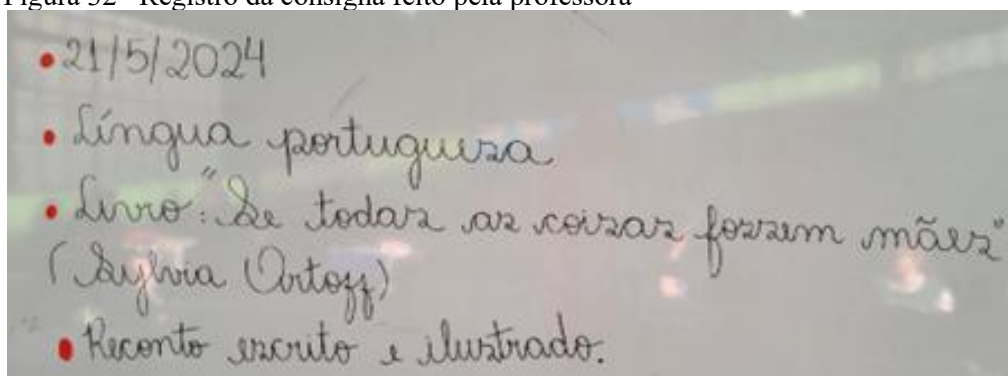 Figura 32 - Registro da consigna feito pela professora
• 21/5/2024
• Língua portuguesa
• Livro: "Se todas as coisas fossem mães"
(Sylvia Ortoff)
• Reconto escrito e ilustrado.